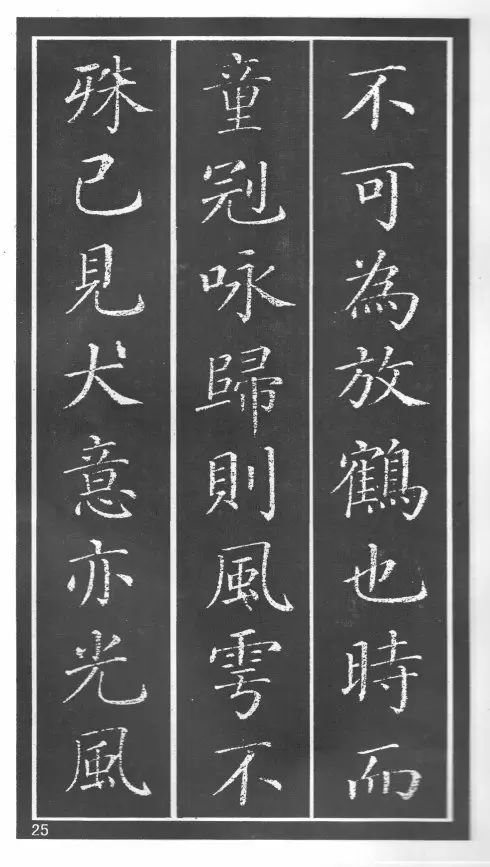 不可為放鶴也時而
童冠咏歸則風雩不
殊已見大意亦光風
25